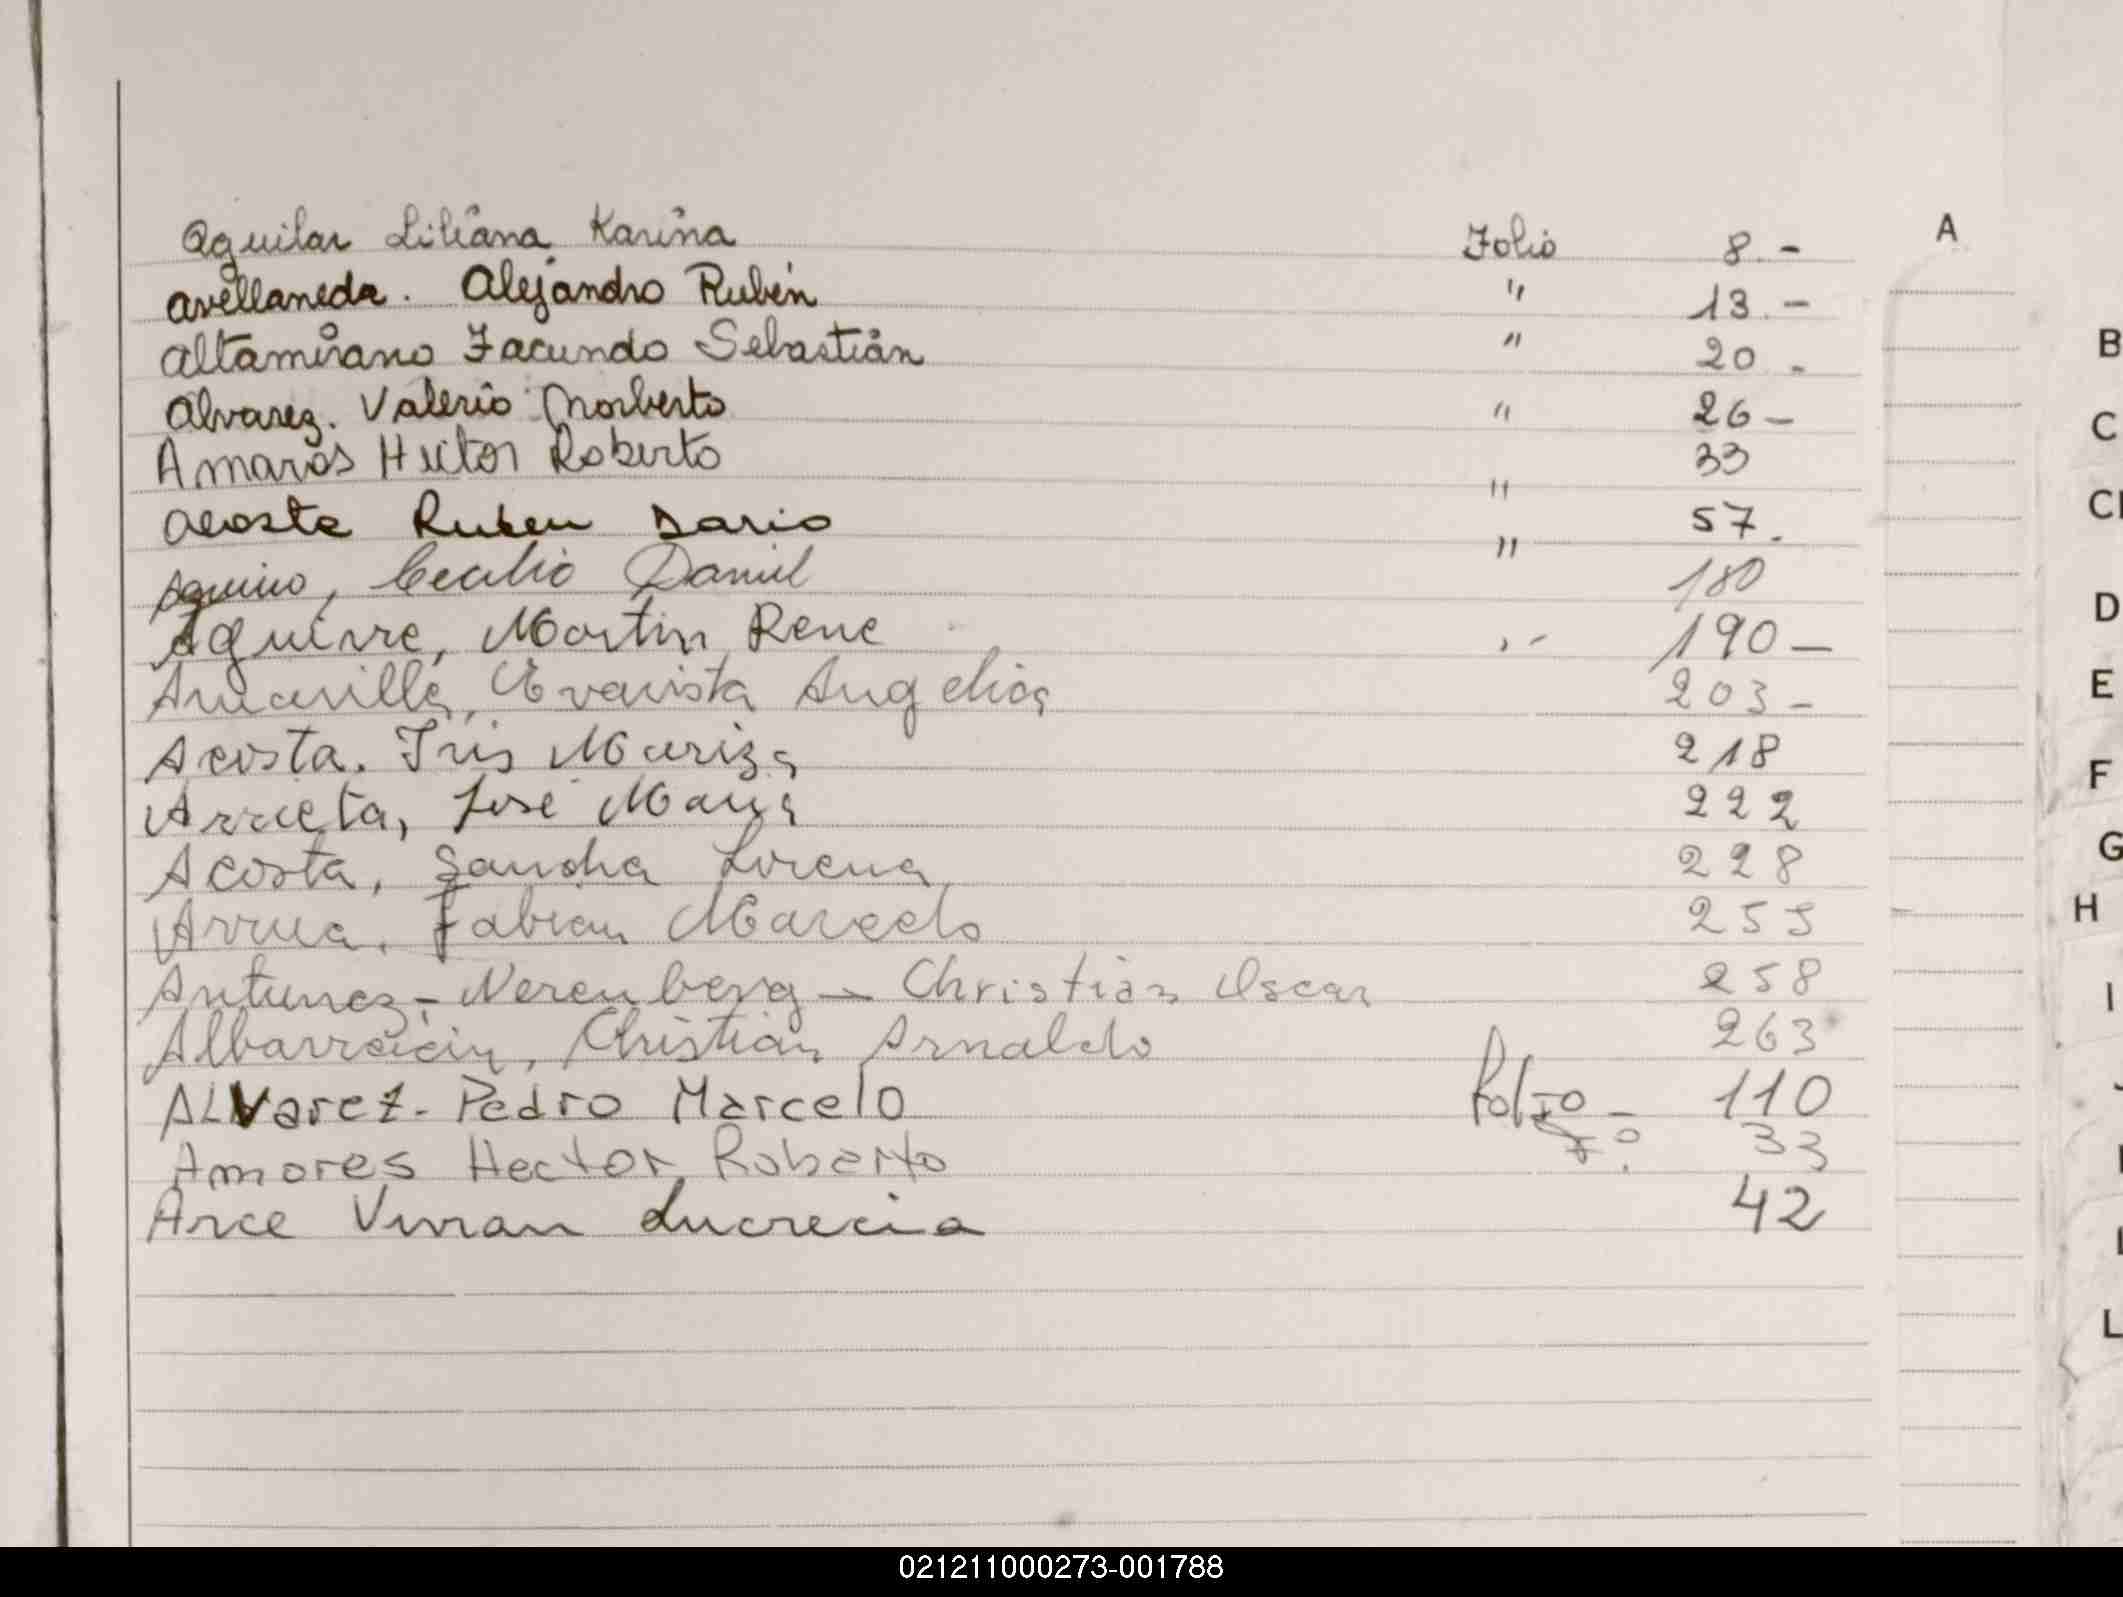 Aguilar Liliana Karina Folio 8.-
A
Avellaneda. Alejandro Rubén " 13.-
Altamirano Facundo Sebastián " 20.
B
Alvarez. Valerio Norberto " 26-
C
Amaros Hector Roberto " 33
Acosta Ruben Dario " 57.
Aquino, Cecilio Daniel 180
D
Aguirre, Martin Rene 190-
Amarilla, Evarista Angelica 203-
E
Acosta. Iris Mariza 218
F
Arrieta, José Maria 222
Acosta, Sandra Lorena 228
G
Arrua, Fabian Marcelo 255
H
Antunez - Nerenberg - Christian Oscar 258
I
Albarracin, Christian Arnaldo 263
ALvarez - Pedro Marcelo Folio - 110
Amores Hector Roberto 33
Arce Vivian Lucrecia 42
L
021211000273-001788